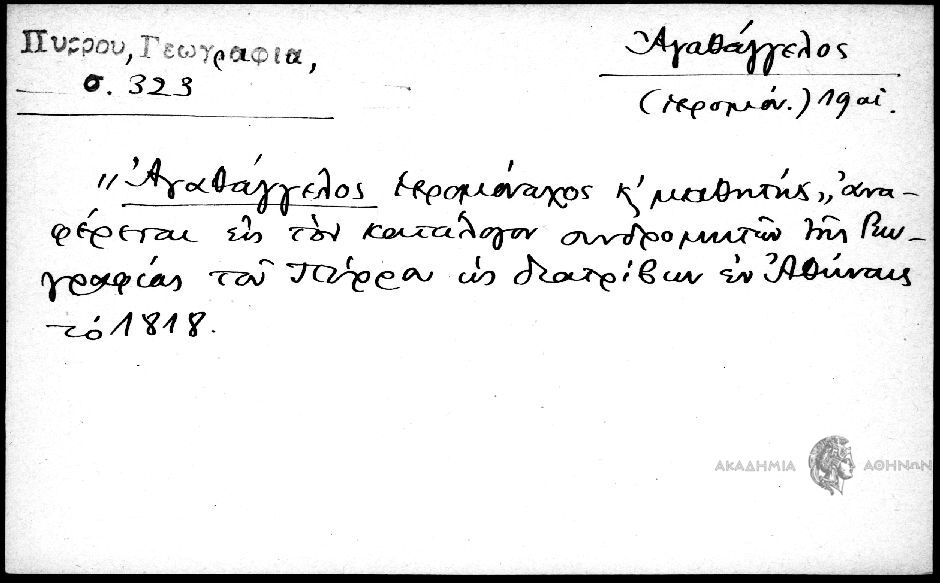 Πυρρου, Γεωγραφια,
σ. 323
Ἀγαθάγγελος
(ἱερομόν.) 19 αἰ.
"Ἀγαθάγγελος ἱερομόναχος κ' μαθητής", ἀνα-
φέρεται εἰς τὸν κατάλογον συνδρομητῶν τῆς Γεω-
γραφίας τοῦ Πύρρου ὡς διατρίβων ἐν Ἀθήναις
τὸ 1818.
ΑΚΑΔΗΜΙΑ ΑΘΗΝΩΝ